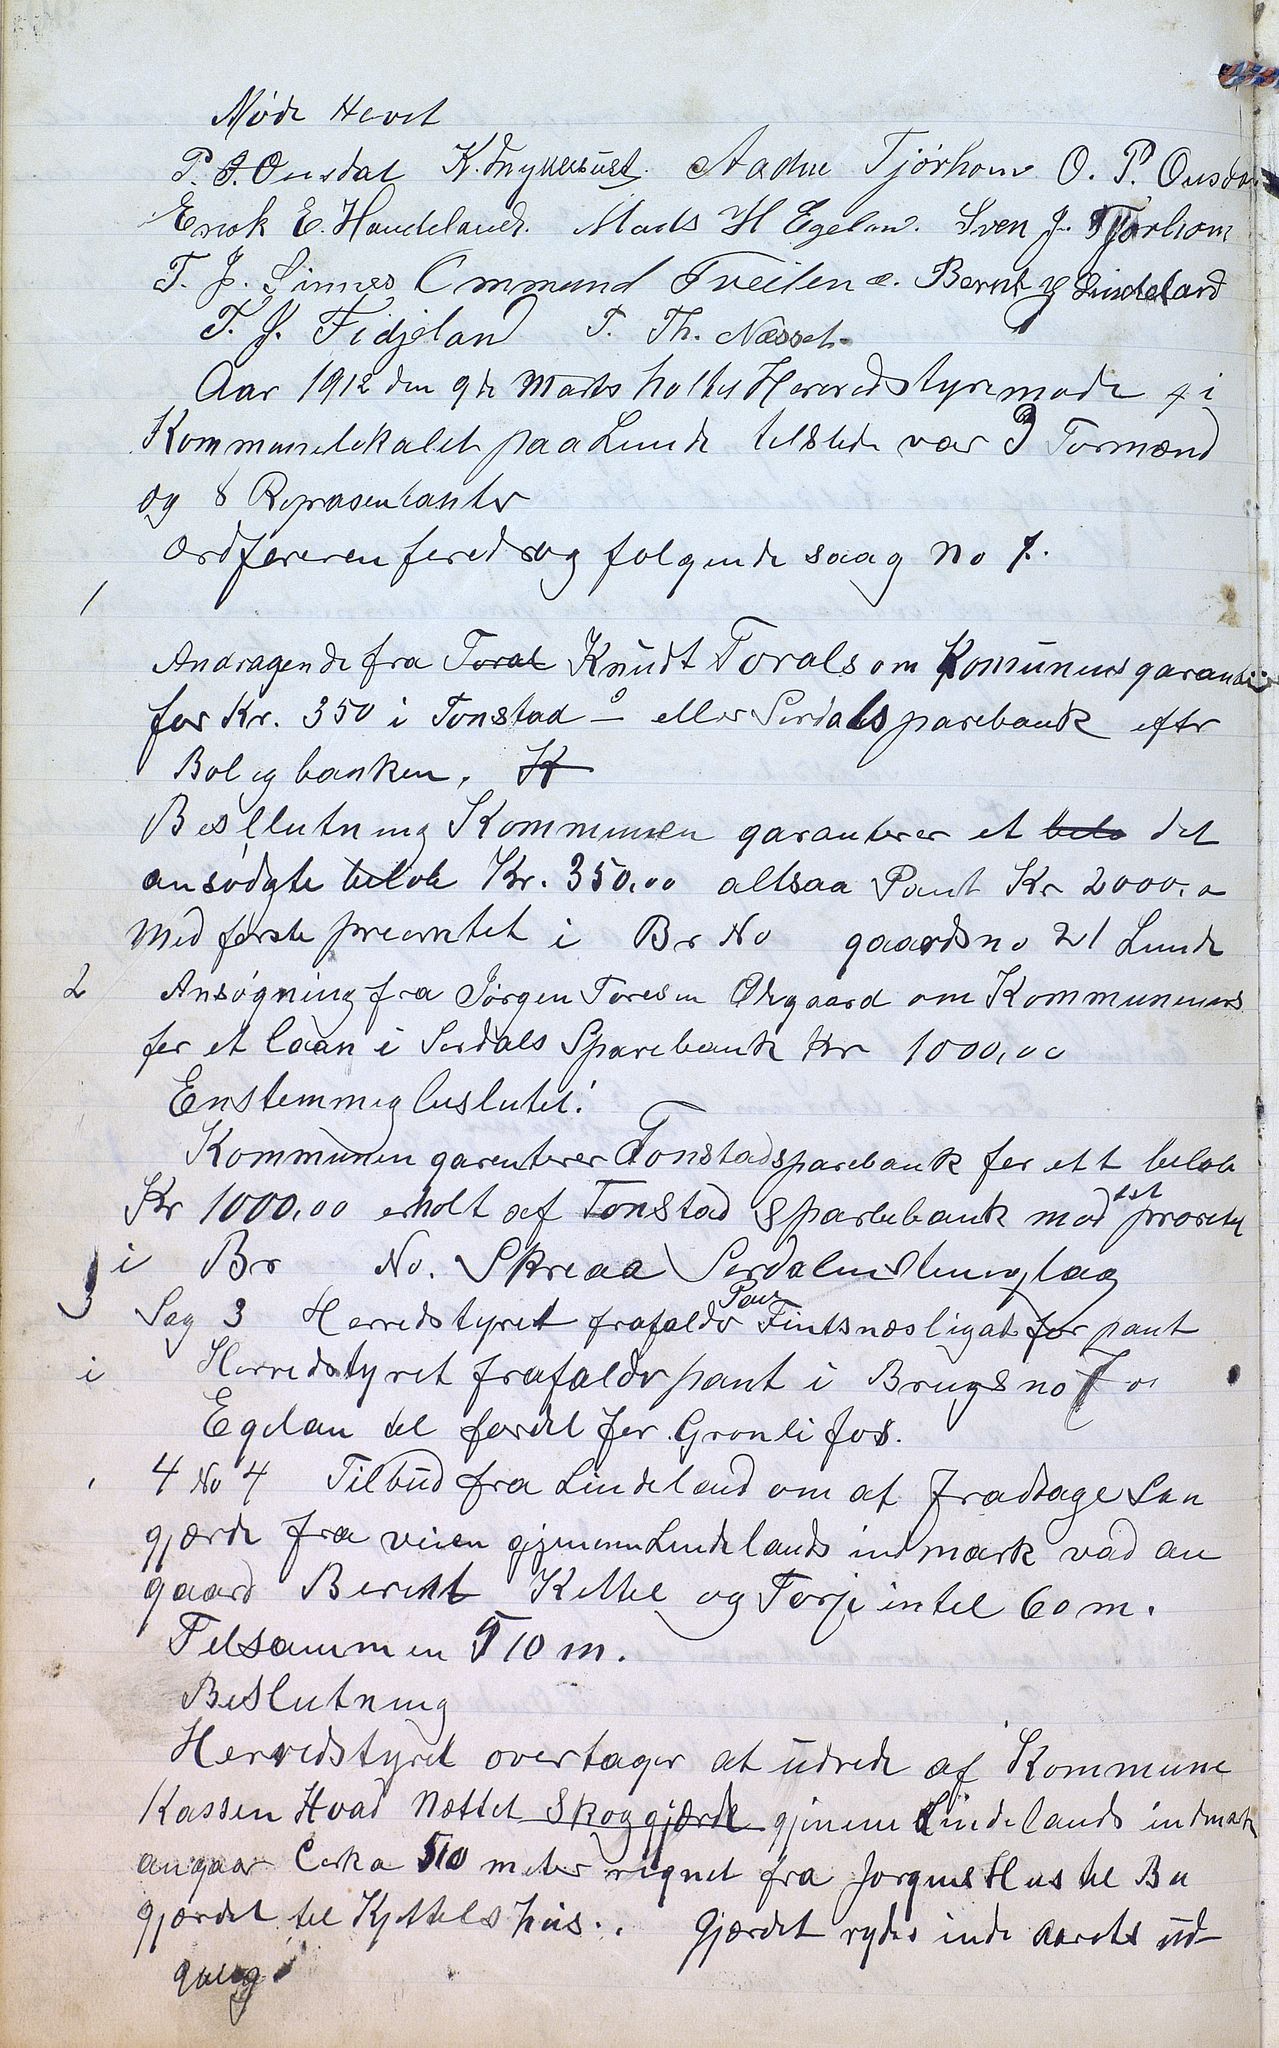 Møde Hevet
P. J. Ousdal K. Aadne Tjørhom O. P. Ousdal
Erek E. Haudeland. Mads H Egelan. Sven J. Tjørhom
T. J. Sinnes Ommund Tveiten. Bernt Lindeland
T. J. Fidjelan T. Th. Nesset.
Aar 1912 den 9de Marts holtes Herredstyremøde i
Kommunelokalet paa Lunde telstede var 3 Formænd
og 8 Repræsentanter
Ordføreren feredrog følgende saag No 1.
1
Andragende fra Toral Knudt Torals om Komunens garanti
for Kr. 350 i Tonstad - eller Serdals sparebank eftr
Boligbanken. K
Besllutning Kommunen garanterer et belø det
ansødgte beløb Kr. 350,00 altsaa Pant Kr 2000,0
Med første preoritet i Br No gaardsno 21 Lunde
2 Ansøgning fra Jørgen Toresen Ovgaard om Kommunens
fer et laan i Serdals Sparebank Kr 1000,00
Enstemmig beslutet:
Kommunen garenterer Tonstad sparebank fer ett beløb
Kr 1000,00 erholt af Tonstad sparebank mod 1st proretet
i Br No. Skreaa Serdalens tinglag
3 Sag 3 Herredstyret frafaldr Paa Fintsnæs ligat for pant
i Herredstyret frafaldr pant i Brugsno 7
Egelan tel fordel fer Gronlifos.
4 No 4 Tilbud fra Lindeland om at fradtage San
gjærde fra veien gjenem Lindelands indmark vad an
gaard Bernt Kettel og Torje intel 60 m.
Telsammen 510 m.
Beslutning
Herredstyret overtager at udrede af Kommune
Kassen Hvad Nættet Skoggjærde gjenem Lindelands indmark
angaar Cerka 510 meter rignet fra Jørgens Hus tel Bu
gjærdet tel Kjettels hus.. Gjærdet rydes inde aarets ud-
gang